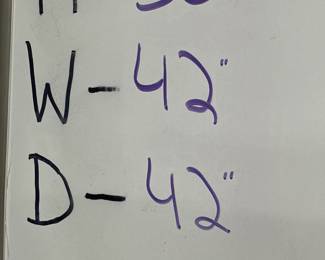 W - 42"
D - 42"